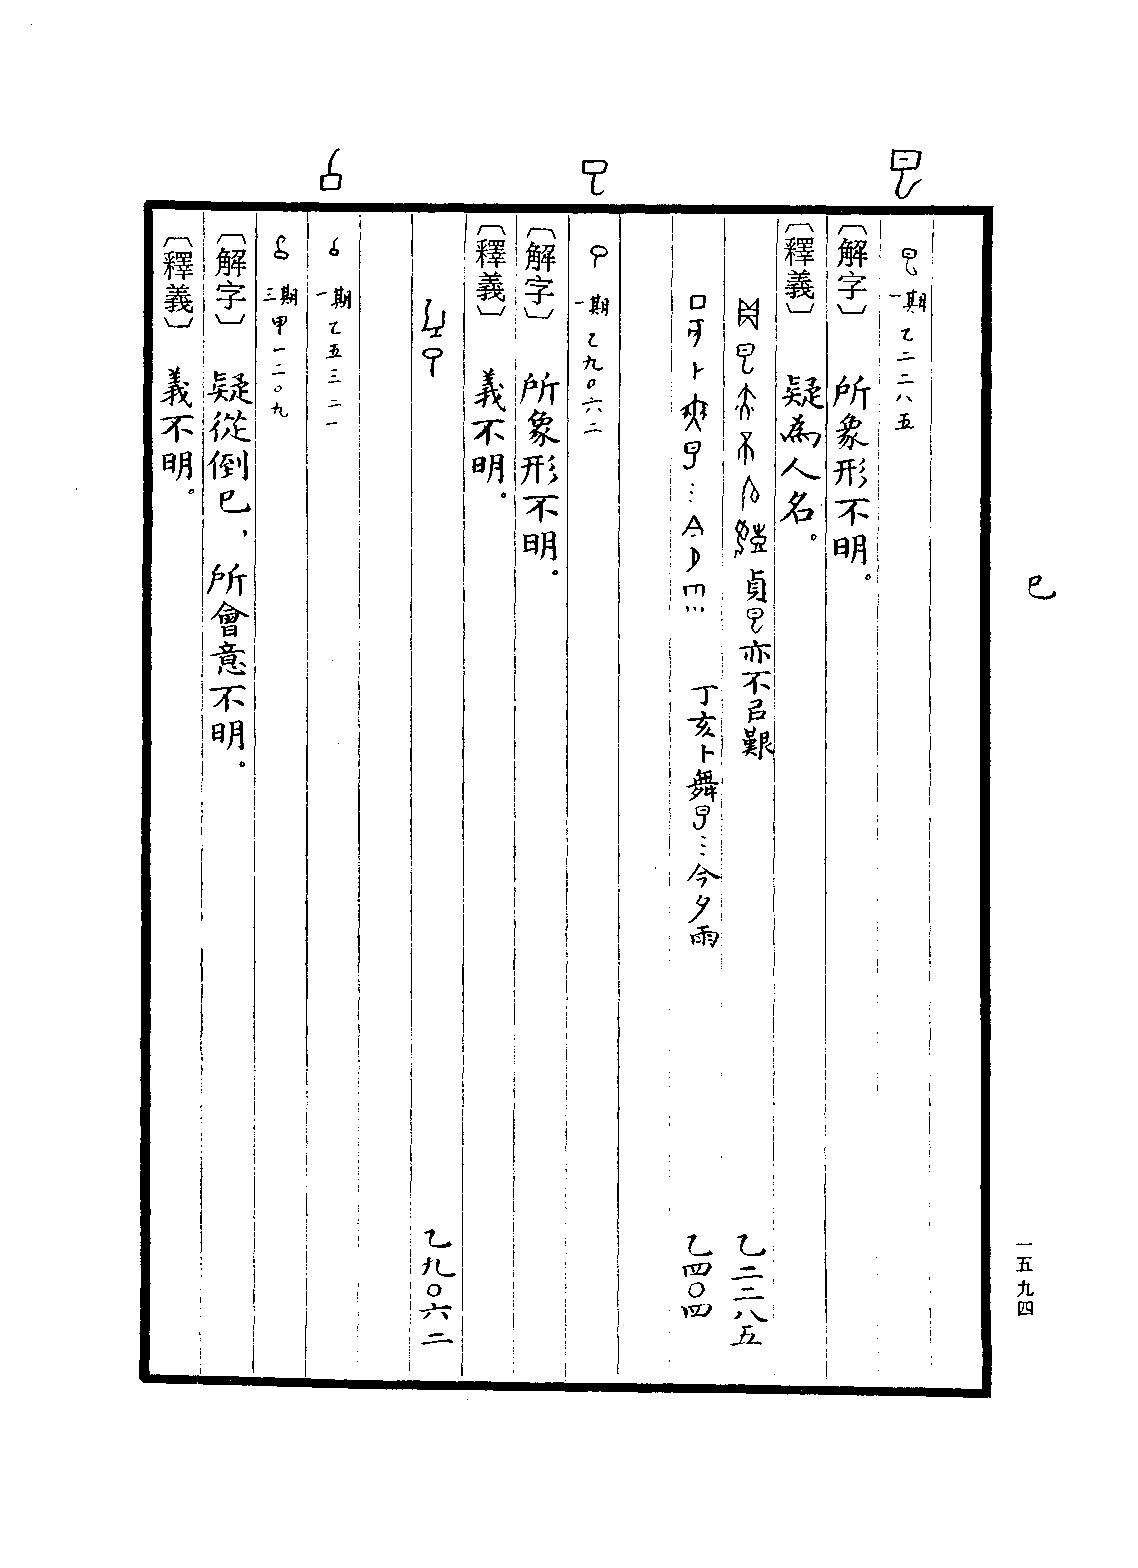 巳
一五九四
一期 乙二二八五
〔解字〕 所象形不明。
〔釋義〕 疑為人名。
貞 亦不 艱 乙二二八五
丁亥卜舞 …今夕雨 乙四〇四
一期 乙九〇六二
〔解字〕 所象形不明。
〔釋義〕 義不明。
乙九〇六二
一期 乙五三二一
三期 甲一二〇九
〔解字〕 疑從倒巳，所會意不明。
〔釋義〕 義不明。